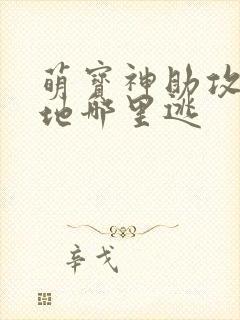 萌宝神助攻
地哪里逃
辛戈